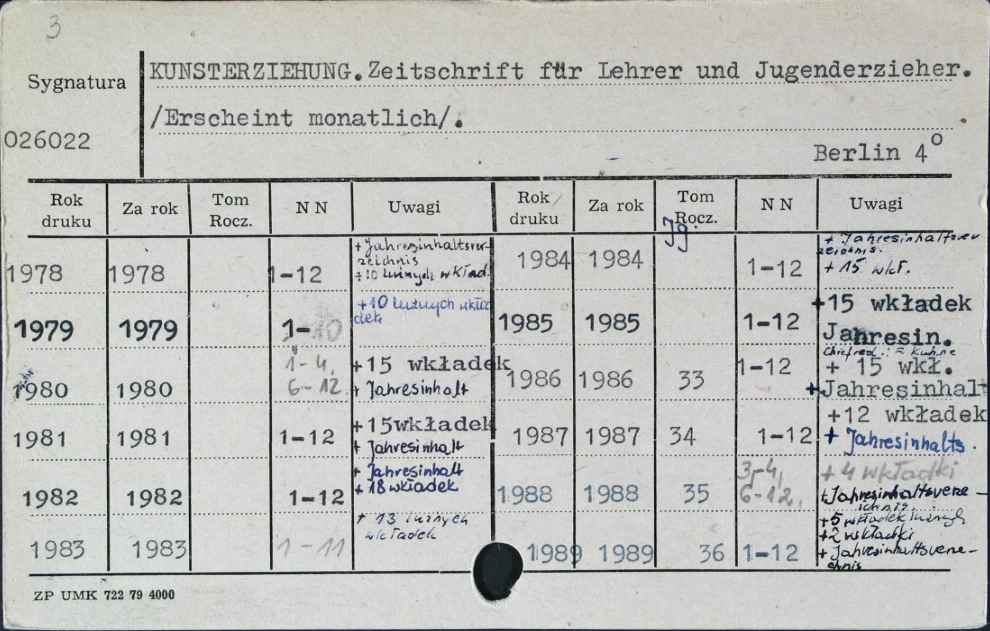 3
Sygnatura
026022
KUNSTERZIEHUNG. Zeitschrift für Lehrer und Jugenderzieher.
/Erscheint monatlich/.
Berlin 4°
Rok druku Za rok Tom Rocz. NN Uwagi Rok druku Za rok Tom Rocz. NN Uwagi
Jg.
1978 1978 1-12 + Jahresinhaltsver-
zeichnis
+ 10 luźnych wkład.
1979 1979 1-10 +10 luźnych wkła
dek
1980 1980 1-4, 6-12. +15 wkładek
+ Jahresinhalt
1981 1981 1-12 +15wkładek
+ Jahresinhalt
1982 1982 1-12 + Jahresinhalt
+ 18 wkładek
1983 1983 1-11 + 13 luźnych
wkładek
1984 1984 1-12 + Jahresinhaltsver
zeichnis.
+ 15 wkł.
1985 1985 1-12 +15 wkładek
Jahresin.
1986 1986 33 1-12 + 15 wkł.
+Jahresinhalt
1987 1987 34 1-12 +12 wkładek
+ Jahresinhalts.
1988 1988 35 3-4, 6-12, + 4 wkładki
+Jahresinhaltsvene-
ichnis.
+5 wkładek luźnych
1989 1989 36 1-12 +2 wkładki
+ Jahresinhaltsvene-
chnis
ZP UMK 722 79 4000